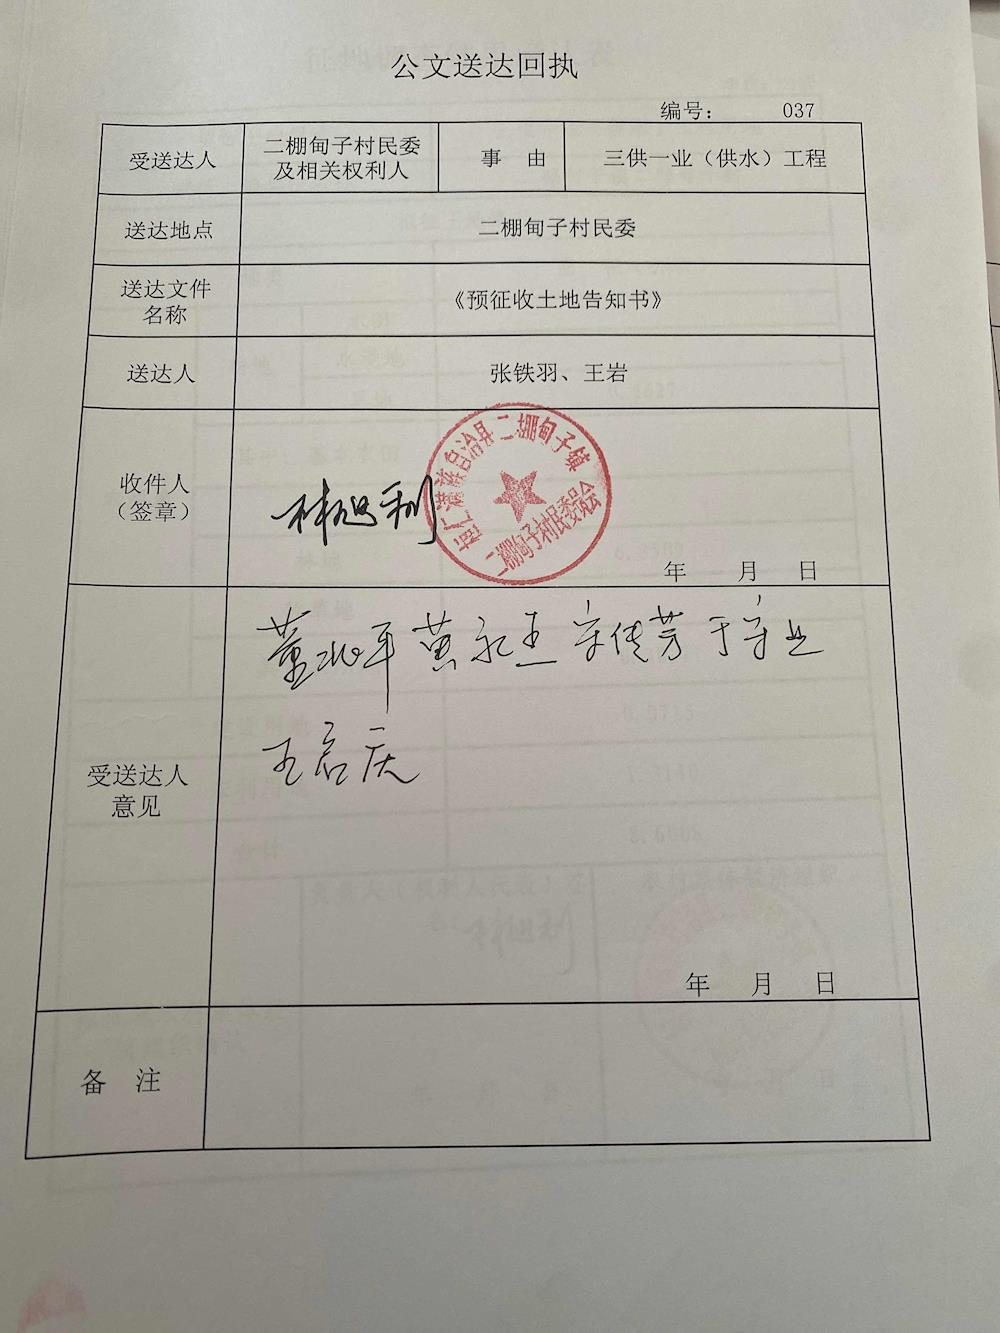 公文送达回执
编号： 037
受送达人
二棚甸子村民委
及相关权利人
事 由
三供一业（供水）工程
送达地点
二棚甸子村民委
送达文件
名称
《预征收土地告知书》
送达人
张铁羽、王岩
收件人
（签章）
桓仁满族自治县二棚甸子镇
二棚甸子村民委员会
年 月 日
受送达人
意见
黄永 宋传芳 于守业
王君庆
年 月 日
备 注